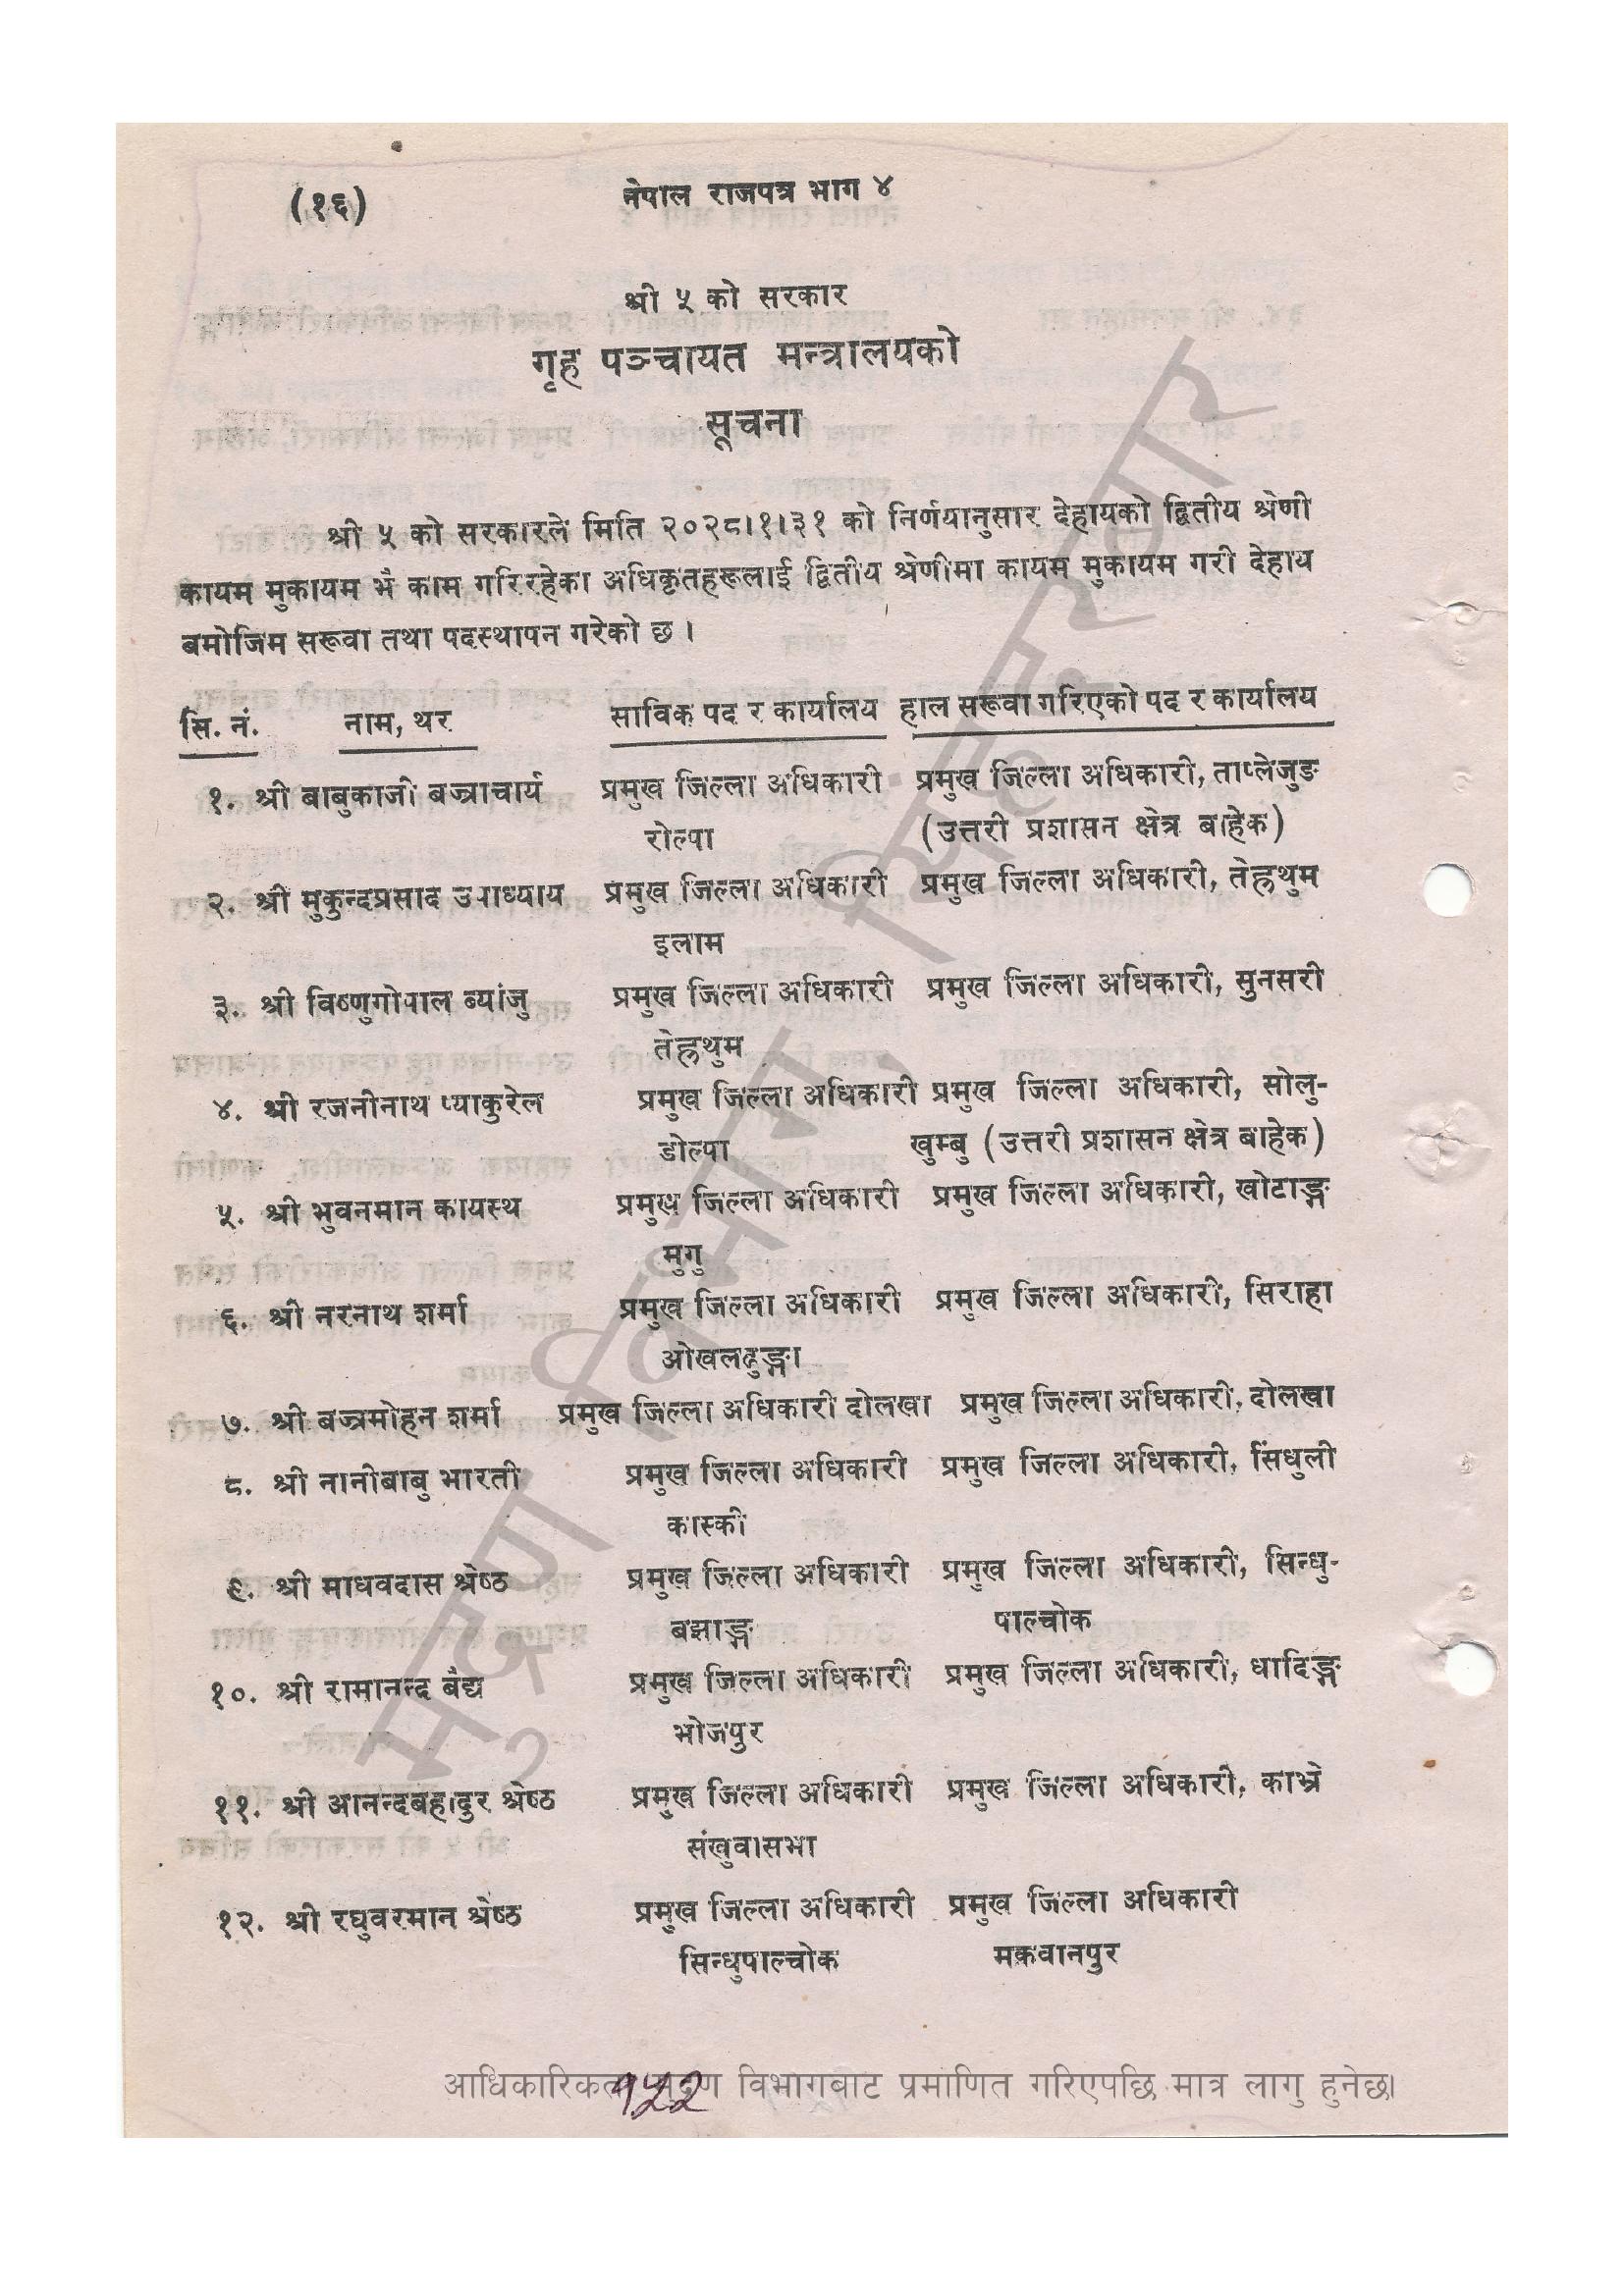 (१६)
नेपाल राजपत्र भाग ४
श्री ५ को सरकार
गृह पञ्चायत मन्त्रालयको
सूचना
श्री ५ को सरकारले मिति २०२८।१।३१ को निर्णयानुसार देहायको द्वितीय श्रेणी
कायम मुकायम भै काम गरिरहेका अधिकृतहरूलाई द्वितीय श्रेणीमा कायम मुकायम गरी देहाय
बमोजिम सरूवा तथा पदस्थापन गरेको छ ।
सि. नं. नाम, थर साविक पद र कार्यालय हाल सरूवा गरिएको पद र कार्यालय
१. श्री बाबुकाजी बज्राचार्य प्रमुख जिल्ला अधिकारी प्रमुख जिल्ला अधिकारी, ताप्लेजुङ
रोल्पा (उत्तरी प्रशासन क्षेत्र बाहेक)
२. श्री मुकुन्दप्रसाद उपाध्याय प्रमुख जिल्ला अधिकारी प्रमुख जिल्ला अधिकारी, तेह्रथुम
इलाम
३. श्री विष्णुगोपाल ब्यांजु प्रमुख जिल्ला अधिकारी प्रमुख जिल्ला अधिकारी, सुनसरी
तेह्रथुम
४. श्री रजनीनाथ प्याकुरेल प्रमुख जिल्ला अधिकारी प्रमुख जिल्ला अधिकारी, सोलु-
डोल्पा खुम्बु (उत्तरी प्रशासन क्षेत्र बाहेक)
५. श्री भुवनमान कायस्थ प्रमुख जिल्ला अधिकारी प्रमुख जिल्ला अधिकारी, खोटाङ्ग
मुगु
६. श्री नरनाथ शर्मा प्रमुख जिल्ला अधिकारी प्रमुख जिल्ला अधिकारी, सिराहा
ओखलढुङ्गा
७. श्री बज्रमोहन शर्मा प्रमुख जिल्ला अधिकारी दोलखा प्रमुख जिल्ला अधिकारी, दोलखा
८. श्री नानीबाबु भारती प्रमुख जिल्ला अधिकारी प्रमुख जिल्ला अधिकारी, सिंधुली
कास्की
९. श्री माधवदास श्रेष्ठ प्रमुख जिल्ला अधिकारी प्रमुख जिल्ला अधिकारी, सिन्धु-
बझाङ्ग पाल्चोक
१०. श्री रामानन्द बैद्य प्रमुख जिल्ला अधिकारी प्रमुख जिल्ला अधिकारी, धादिङ्ग
भोजपुर
११. श्री आनन्दबहादुर श्रेष्ठ प्रमुख जिल्ला अधिकारी प्रमुख जिल्ला अधिकारी, काभ्रे
संखुवासभा
१२. श्री रघुवरमान श्रेष्ठ प्रमुख जिल्ला अधिकारी प्रमुख जिल्ला अधिकारी
सिन्धुपाल्चोक मकवानपुर
मुद्रण विभाग, सिंहदरबार
आधिकारिकता मुद्रण विभागबाट प्रमाणित गरिएपछि मात्र लागु हुनेछ।
१५२